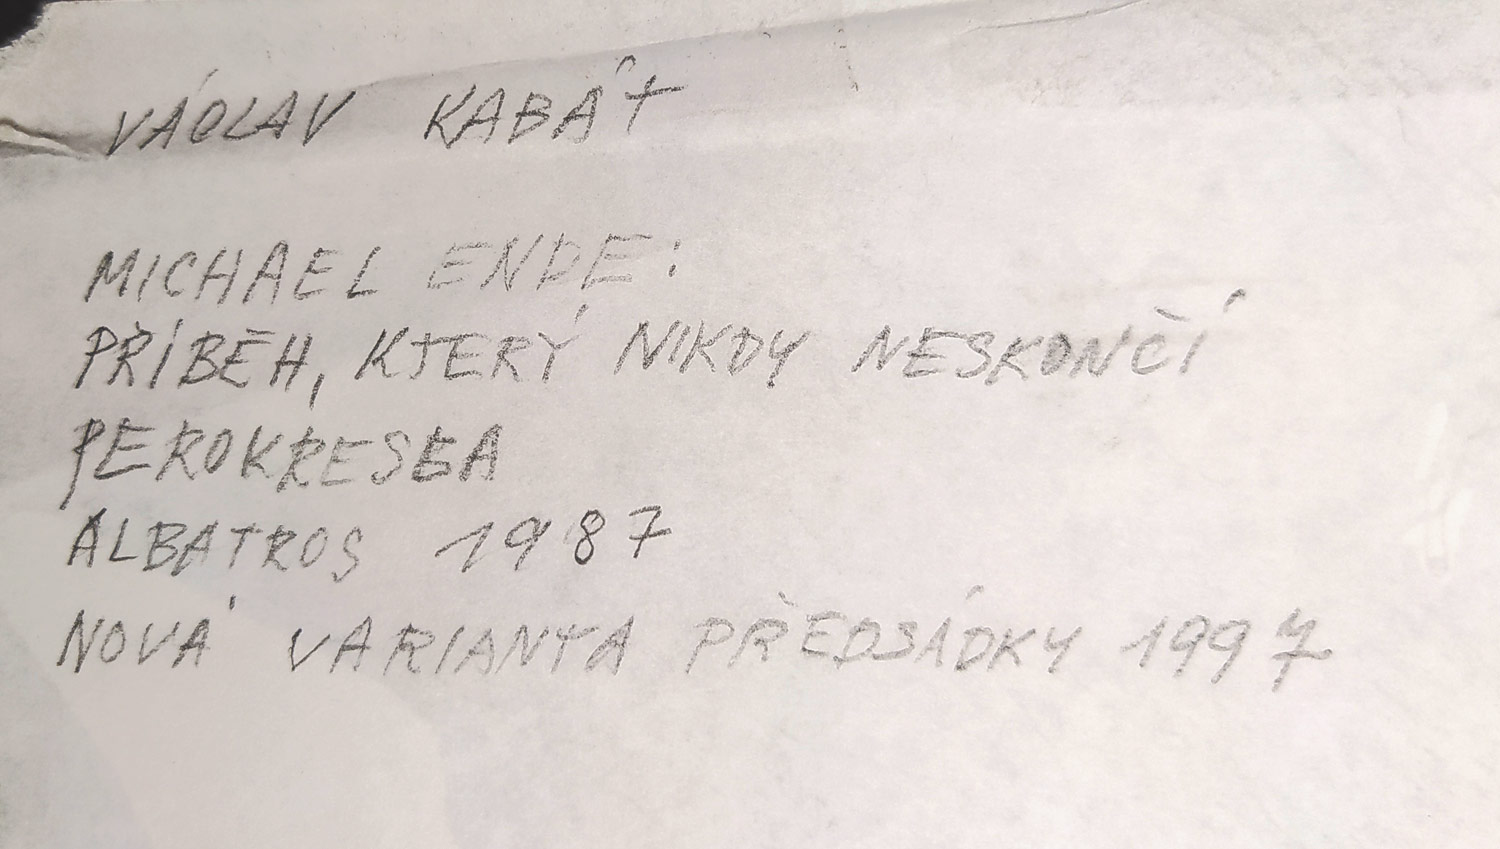 VÁCLAV KABÁT
MICHAEL ENDE:
PŘÍBĚH, KTERÝ NIKDY NESKONČÍ
PEROKRESBA
ALBATROS 1987
NOVÁ VARIANTA PŘEDSÁDKY 1997